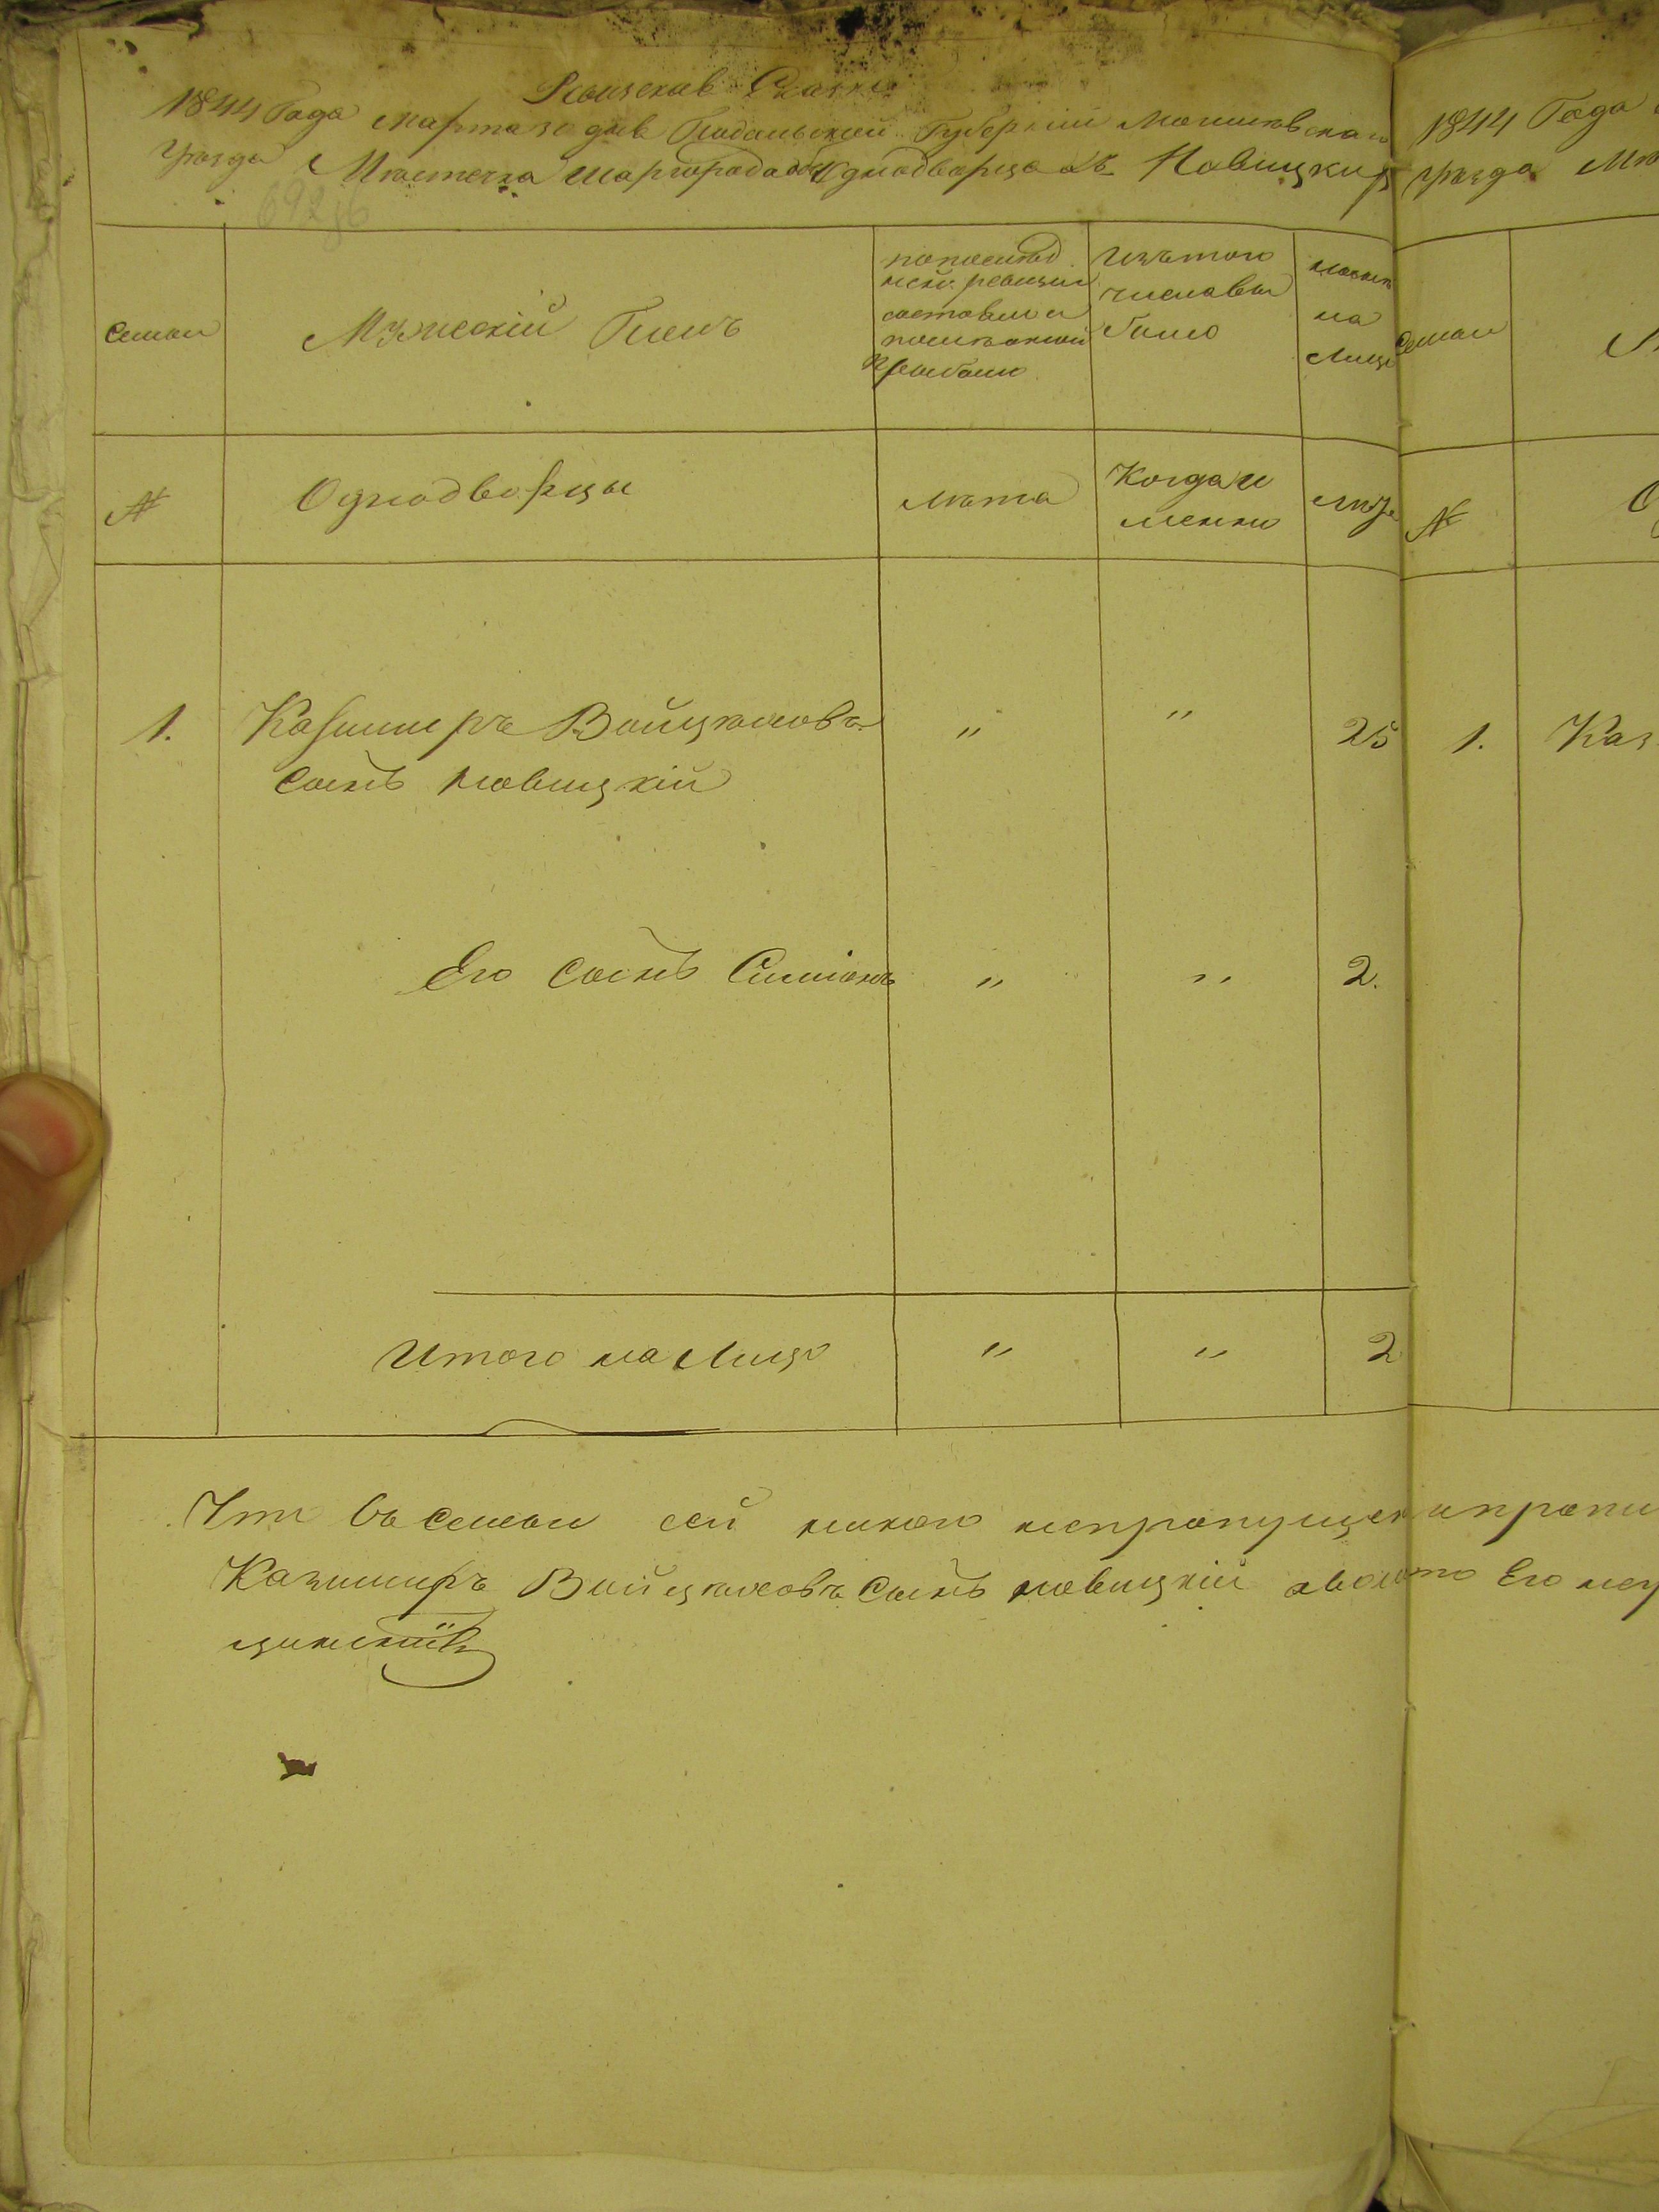 Ревизская Сказка
1844 Года марта 30 дня Подольской Губернии Могилевскаго
уезда Местечка Шаргорода объ Однодворцахъ Новицкихъ
69286
Семьи
Мужескій Полъ
по послед
ней ревизіи
состояло и
после оной
прибыло
Изъ того
числа вы
было
ныне
на
лицо
№
Однодворцы
лета
Когда и
лета
1.
Казимиръ Войцеховъ
сынъ Новицкій
"
"
25
Его сынъ Симіонъ
"
"
2.
Итого на лицо
"
"
2
Что въ семьи сей никого непропущен
Казимиръ Войцеховъ сынъ Новицкій
1844 Года
уезда Ме
Семьи
№
1.
Каз
Его неу